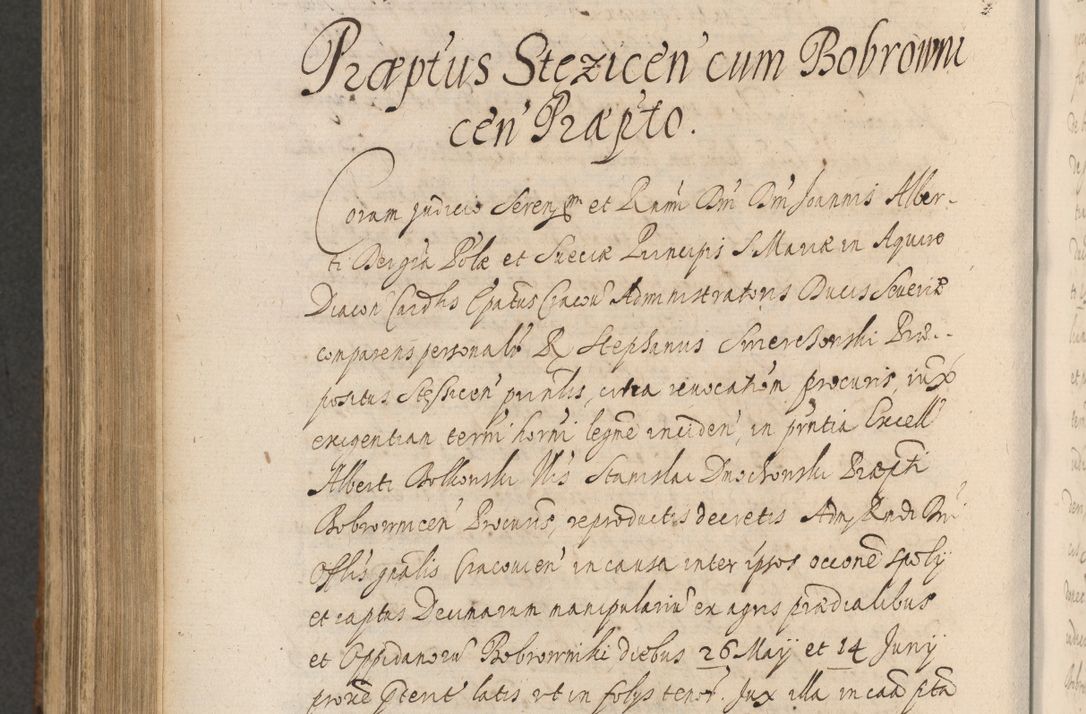 Præptus Stęzicen̄ cum Bobrowni
cen̄ Præpto.
Coram judicio Sereniss et Rnmi Dni Dni Joannis Alber-
ti Dei grã Polæ et Sueciæ Principis S. Mariæ in Aquiro
Diacon Cardlis Epatus Cracou Administratoris Ducis Seueriæ
comparens personalr R Stephanus Præ-
positus Stęsicen principalis, citra reuocatiõm procuris, iux
exigentiam termi horni legme inciden, in pñtia Excell
Alberti Bolkonski Nis Stanislai Præpti
Bobrownicen Procuris, reproductis decretis Adm Rndi Dni
Offlis gñalis Cracouien in causa inter ipsos occõne spolij
et captus Decimarum manipulariũ ex agris prædialibus
et Oppidanorũ Bobrowniki diebus 26 Maij et 14 Junij
proxe pterit latis vt in folijs tenor. Jux illa in caã pta